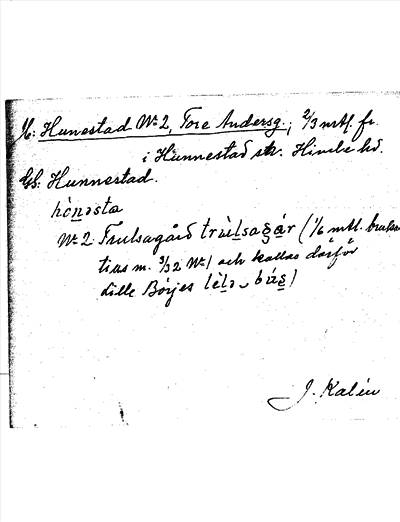 Jb: Hunestad No 2, Tore Andersg.; 2/3 mtl. fr.
i Hunnestad skn. Himle hd.
Gb: Hunnestad.
hònəsta
No 2. Trulsagård trùlsagár (1/6 mtl. brukas
tills m. 3/32 No 1 och kallas därför
Lille Börjes
J. Kalén